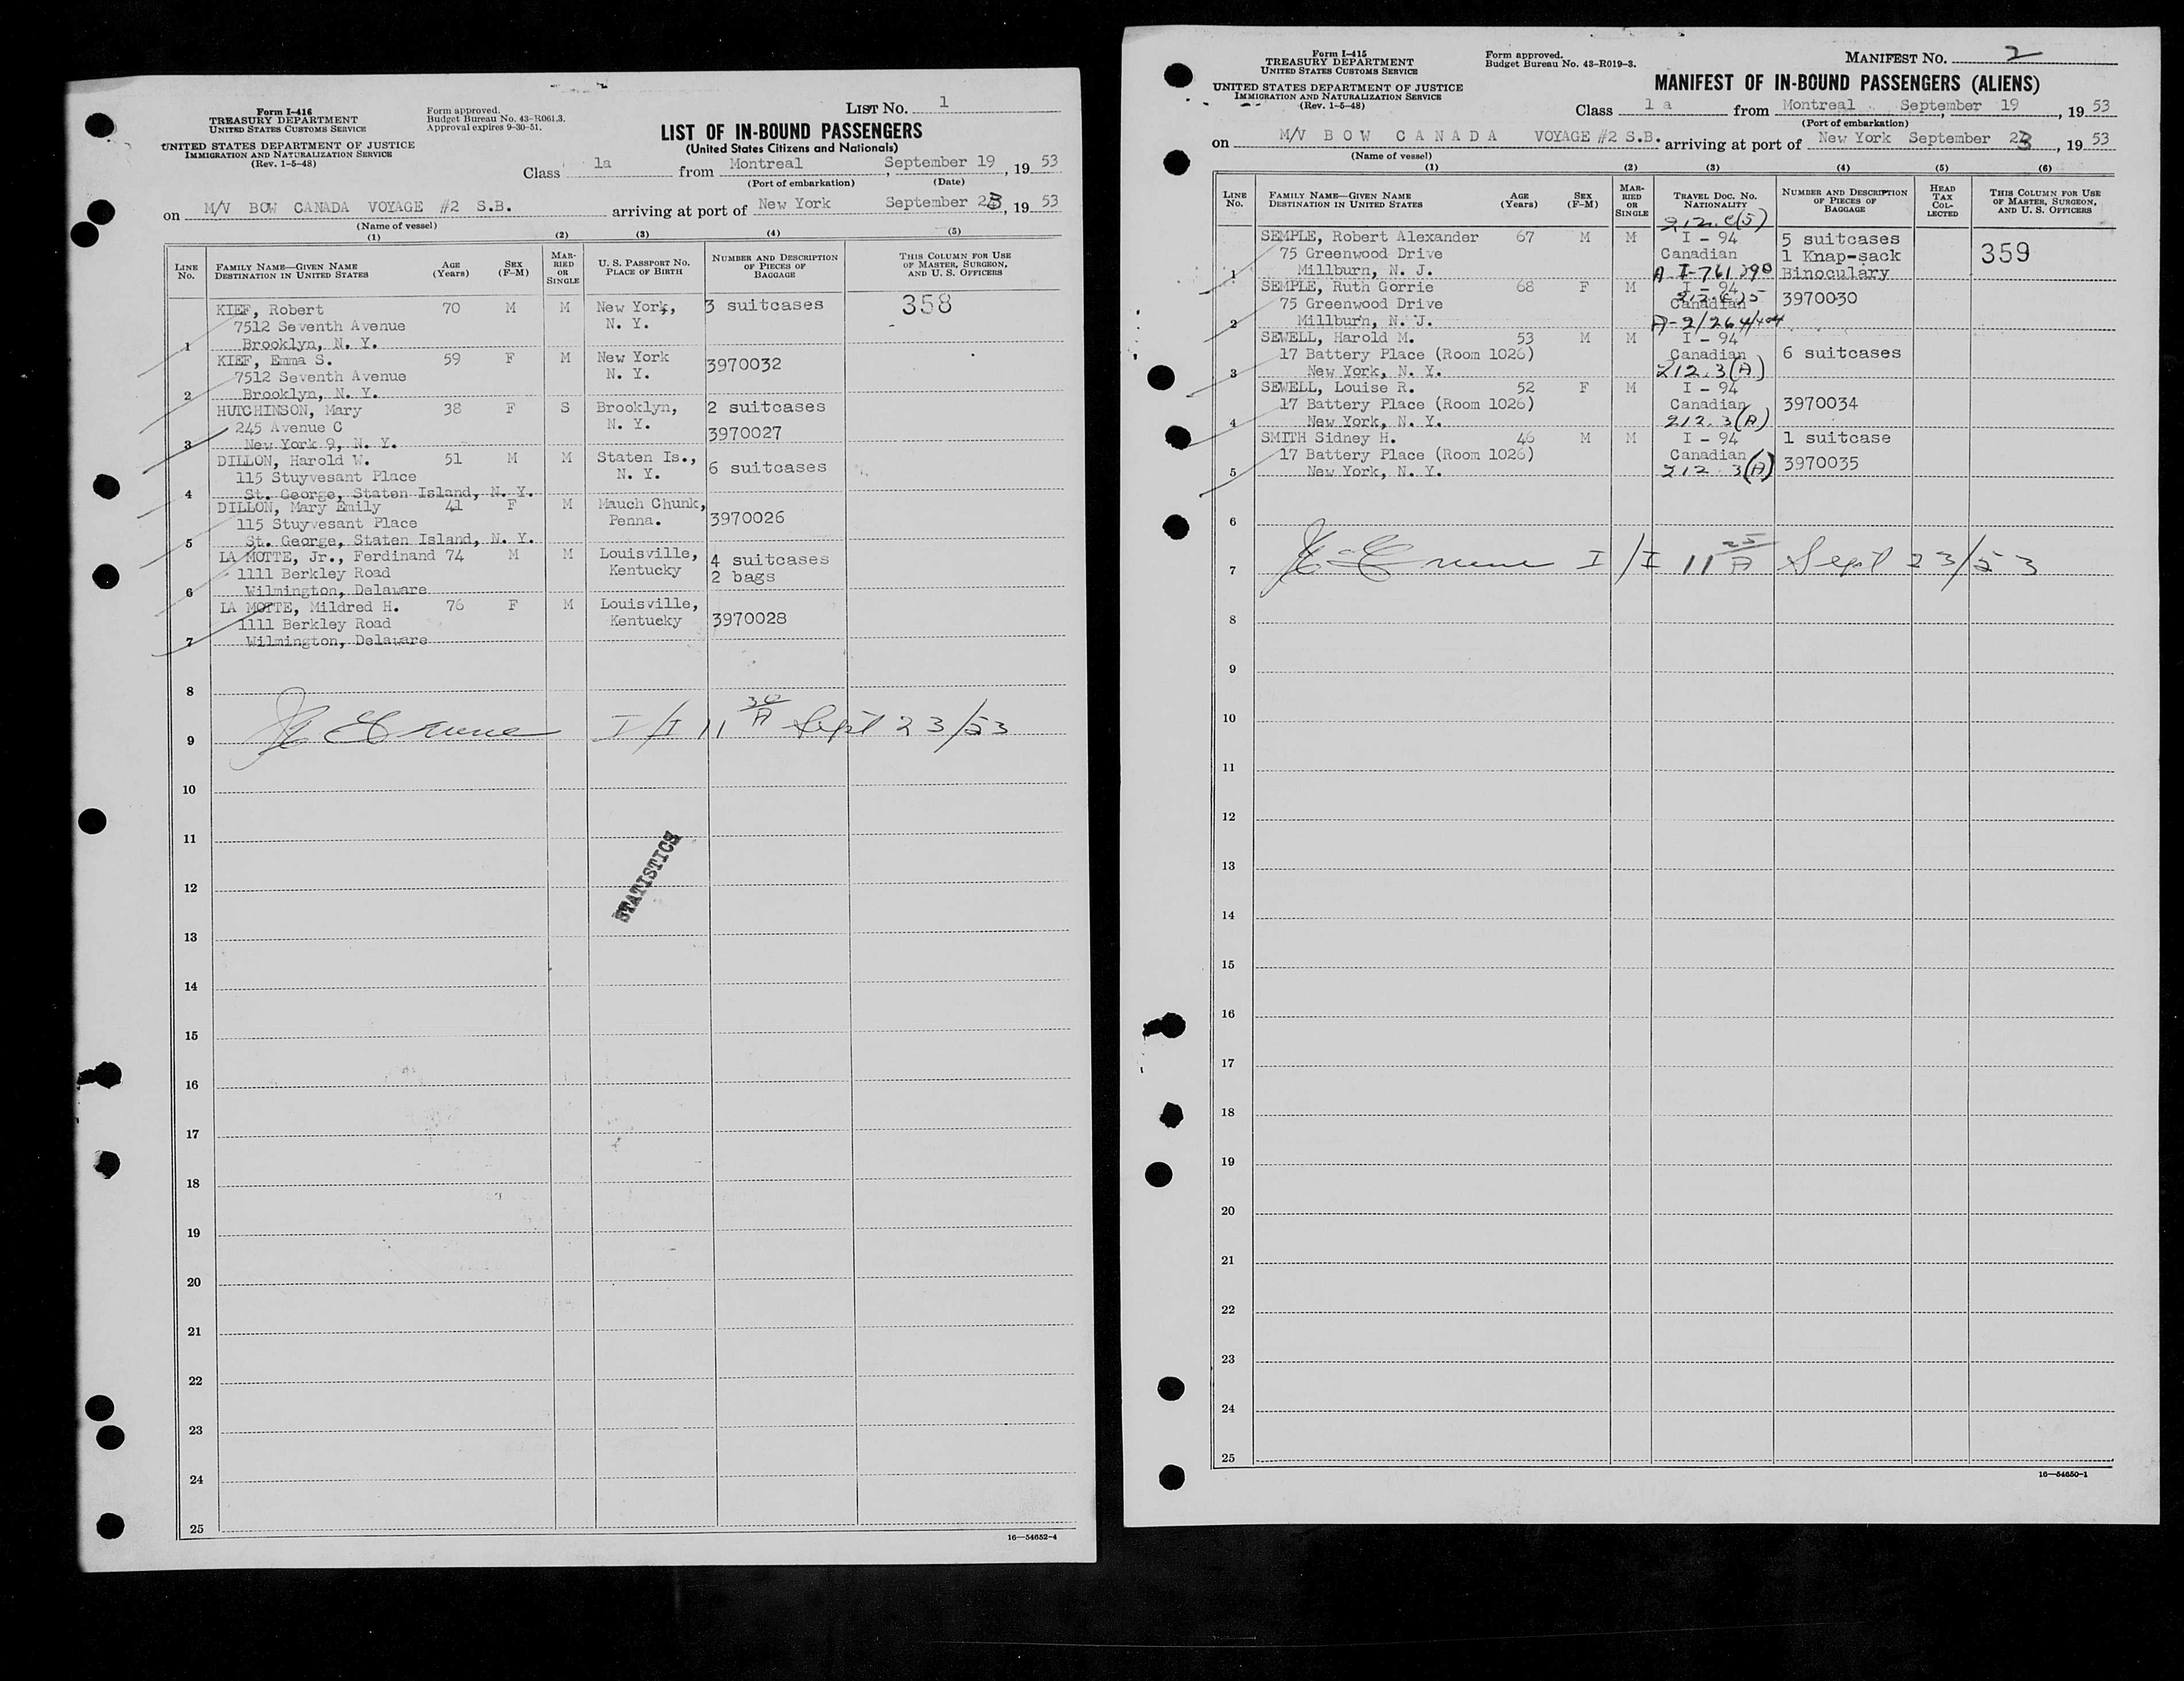 Form I-416
TREASURY DEPARTMENT
UNITED STATES CUSTOMS SERVICE
UNITED STATES DEPARTMENT OF JUSTICE
IMMIGRATION AND NATURALIZATION SERVICE
(Rev. 1-5-48)
Form approved.
Budget Bureau No. 43-R061.3.
Approval expires 9-30-51.
LIST NO. 1
LIST OF IN-BOUND PASSENGERS
(United States Citizens and Nationals)
Class 1a from Montreal, September 19, 1953
(Port of embarkation) (Date)
on M/V BOW CANADA VOYAGE #2 S.B. arriving at port of New York September 23, 1953
(Name of vessel)
(1) (2) (3) (4) (5)
LINE No. FAMILY NAME—GIVEN NAME DESTINATION IN UNITED STATES AGE (Years) SEX (F-M) MARRIED OR SINGLE U. S. PASSPORT NO. PLACE OF BIRTH NUMBER AND DESCRIPTION OF PIECES OF BAGGAGE THIS COLUMN FOR USE OF MASTER, SURGEON, AND U. S. OFFICERS
KIEF, Robert 70 M M New York, 3 suitcases 358
7512 Seventh Avenue N. Y.
1 Brooklyn, N. Y.
KIEF, Emma S. 59 F M New York 3970032
7512 Seventh Avenue N. Y.
2 Brooklyn, N. Y.
HUTCHINSON, Mary 38 F S Brooklyn, 2 suitcases
245 Avenue C N. Y. 3970027
3 New York 9, N. Y.
DILLON, Harold W. 51 M M Staten Is., 6 suitcases
115 Stuyvesant Place N. Y.
4 St. George, Staten Island, N. Y.
DILLON, Mary Emily 41 F M Mauch Chunk, 3970026
115 Stuyvesant Place Penna.
5 St. George, Staten Island, N. Y.
LA MOTTE, Jr., Ferdinand 74 M M Louisville, 4 suitcases
1111 Berkley Road Kentucky 2 bags
6 Wilmington, Delaware
LA MOTTE, Mildred H. 76 F M Louisville, 3970028
1111 Berkley Road Kentucky
7 Wilmington, Delaware
8
9 I/I 11 30 A Sept 23/53
10
11
STATISTICS
12
13
14
15
16
17
18
19
20
21
22
23
24
25
16—54652-4
Form I-415
TREASURY DEPARTMENT
UNITED STATES CUSTOMS SERVICE
UNITED STATES DEPARTMENT OF JUSTICE
IMMIGRATION AND NATURALIZATION SERVICE
(Rev. 1-5-48)
Form approved.
Budget Bureau No. 43-R019-3.
MANIFEST NO. 2
MANIFEST OF IN-BOUND PASSENGERS (ALIENS)
Class 1 a from Montreal, September 19, 1953
(Port of embarkation)
on M/V BOW CANADA VOYAGE #2 S.B. arriving at port of New York September 23, 1953
(Name of vessel)
(1) (2) (3) (4) (5) (6)
LINE No. FAMILY NAME—GIVEN NAME DESTINATION IN UNITED STATES AGE (Years) SEX (F-M) MARRIED OR SINGLE TRAVEL DOC. NO. NATIONALITY NUMBER AND DESCRIPTION OF PIECES OF BAGGAGE HEAD TAX COLLECTED THIS COLUMN FOR USE OF MASTER, SURGEON, AND U. S. OFFICERS
SEMPLE, Robert Alexander 67 M M I - 94 5 suitcases 359
75 Greenwood Drive Canadian 1 Knap-sack
1 Millburn, N. J. Binoculary
SEMPLE, Ruth Gorrie 68 F M I - 94 3970030
75 Greenwood Drive Canadian
2 Millburn, N. J.
SEWELL, Harold M. 53 M M I - 94
17 Battery Place (Room 1026) Canadian 6 suitcases
3 New York, N. Y. 212.3(A)
SEWELL, Louise R. 52 F M I - 94
17 Battery Place (Room 1026) Canadian 3970034
4 New York, N. Y. 212.3(A)
SMITH Sidney H. 46 M M I - 94 1 suitcase
17 Battery Place (Room 1026) Canadian 3970035
5 New York, N. Y. 212.3(A)
6
7 I/I 11 25 A Sept 23/53
8
9
10
11
12
13
14
15
16
17
18
19
20
21
22
23
24
25
16—54650-1